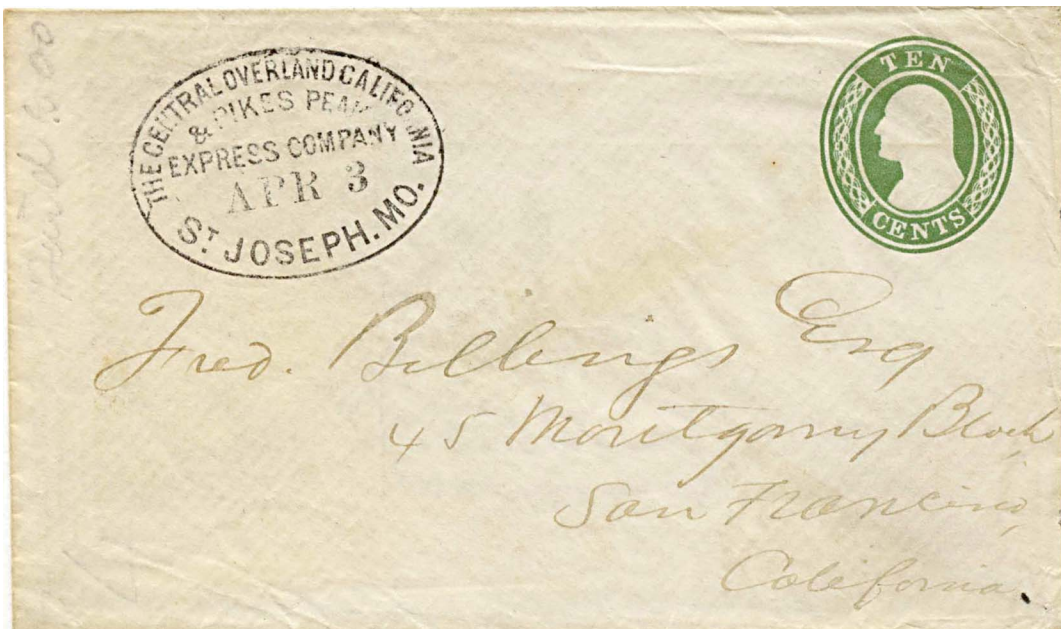 THE CENTRAL OVERLAND CALIFORNIA
& PIKES PEAK
EXPRESS COMPANY
APR 3
ST JOSEPH. MO.
TEN
CENTS
Fred. Billings Esq
45 Montgomery Block
San Francisco,
California